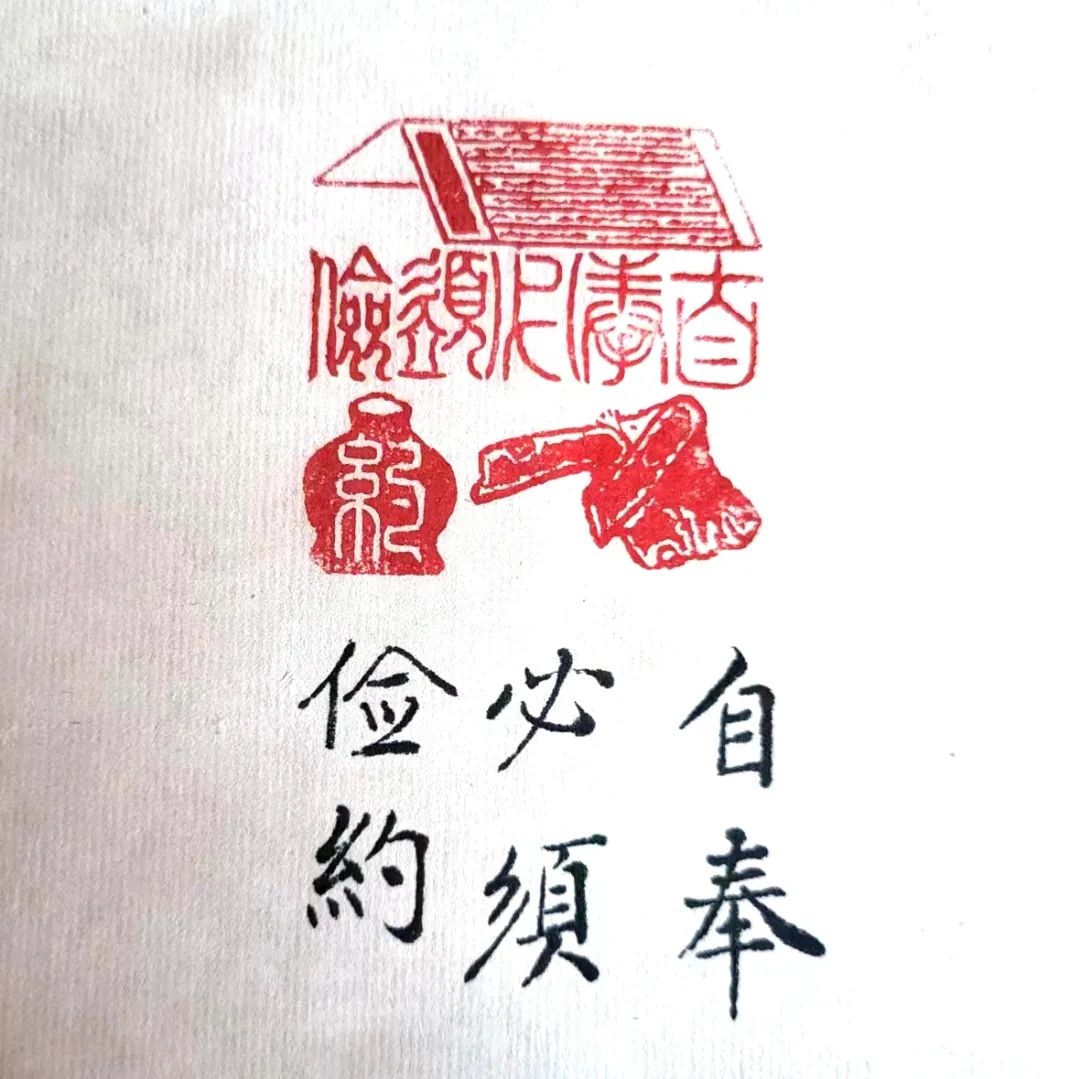 自奉必須儉
約
自奉
必須
俭約